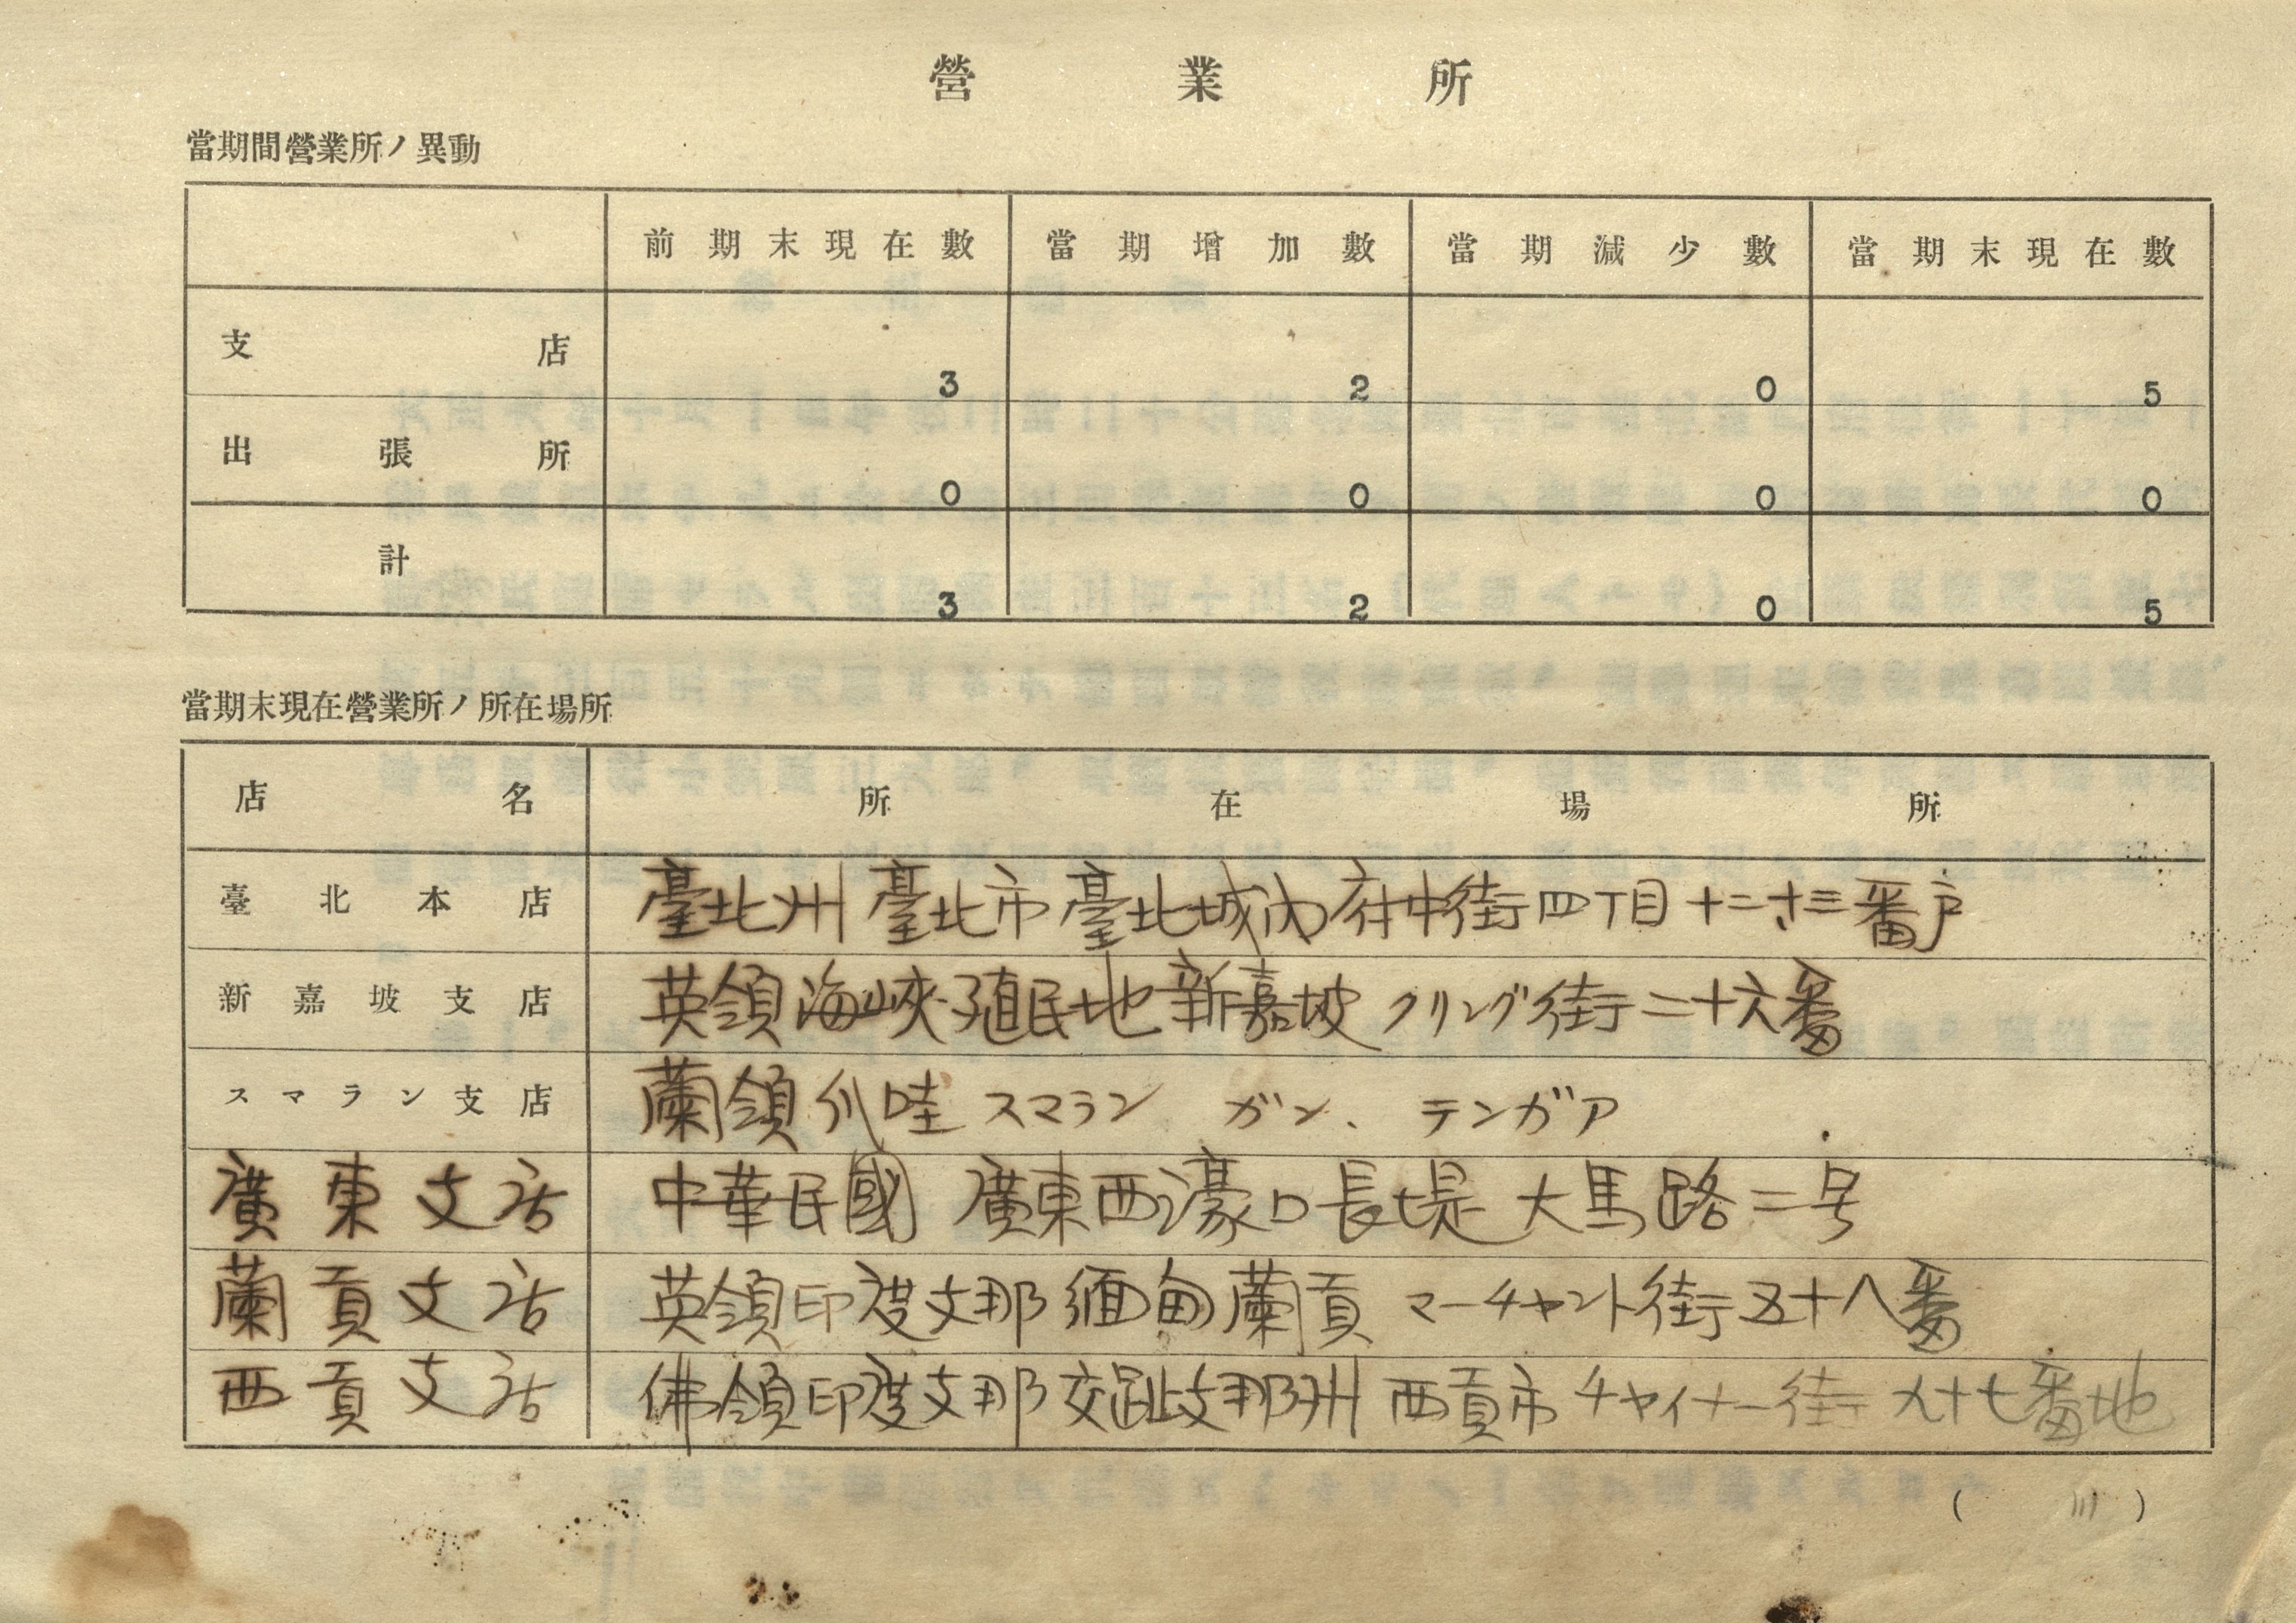 營業所
當期間營業所ノ異動
前期末現在數 當期增加數 當期減少數 當期末現在數
支店 3 2 0 5
出張所 0 0 0 0
計 3 2 0 5
當期末現在營業所ノ所在場所
店名 所在場所
臺北本店 臺北州臺北市臺北城內府中街四丁目十二、十三番戶
新嘉坡支店 英領海峽殖民地新嘉坡クリング街二十六番
スマラン支店 蘭領爪哇スマラン ガン、テンガア
廣東支店 中華民國 廣東西濠口長堤大馬路二号
蘭貢支店 英領印度支那緬甸蘭貢マーチャント街五十八番
西貢支店 佛領印度支那交趾支那州西貢市チャイナー街九十七番地
(三)